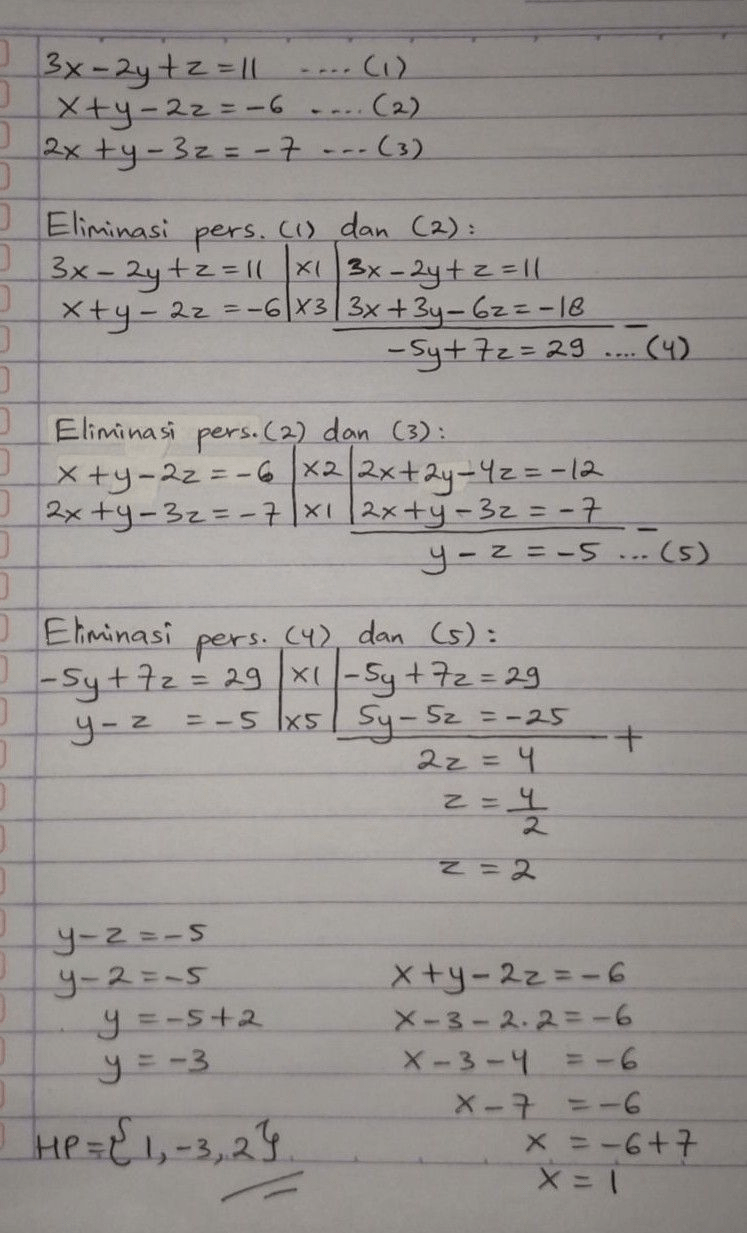 3x - 2y + z = 11 .... (1)
x + y - 2z = -6 .... (2)
2x + y - 3z = -7 .... (3)
Eliminasi pers. (1) dan (2) :
3x - 2y + z = 11 | x1 | 3x - 2y + z = 11
x + y - 2z = -6 | x3 | 3x + 3y - 6z = -18 -
-5y + 7z = 29 .... (4)
Eliminasi pers. (2) dan (3) :
x + y - 2z = -6 | x2 | 2x + 2y - 4z = -12
2x + y - 3z = -7 | x1 | 2x + y - 3z = -7 -
y - z = -5 ... (5)
Eliminasi pers. (4) dan (5) :
-5y + 7z = 29 | x1 | -5y + 7z = 29
y - z = -5 | x5 | 5y - 5z = -25 +
2z = 4
z = 4/2
z = 2
y - z = -5
y - 2 = -5
y = -5 + 2
y = -3
x + y - 2z = -6
x - 3 - 2.2 = -6
x - 3 - 4 = -6
x - 7 = -6
x = -6 + 7
x = 1
HP = {1, -3, 2}